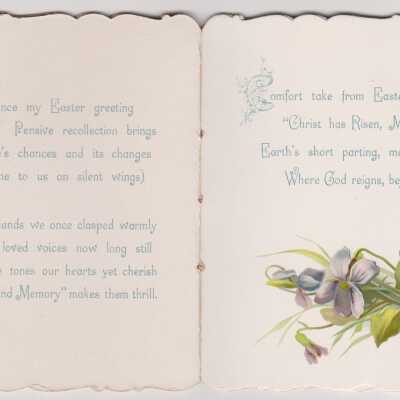 nce my Easter greeting
Pensive recollection brings
's chances and its changes
me to us on silent wings)
ands we once clasped warmly
loved voices now long still
tones our hearts yet cherish
nd Memory" makes them thrill.
Comfort take from Easte
"Christ has Risen, M
Earth's short parting, me
Where God reigns, be